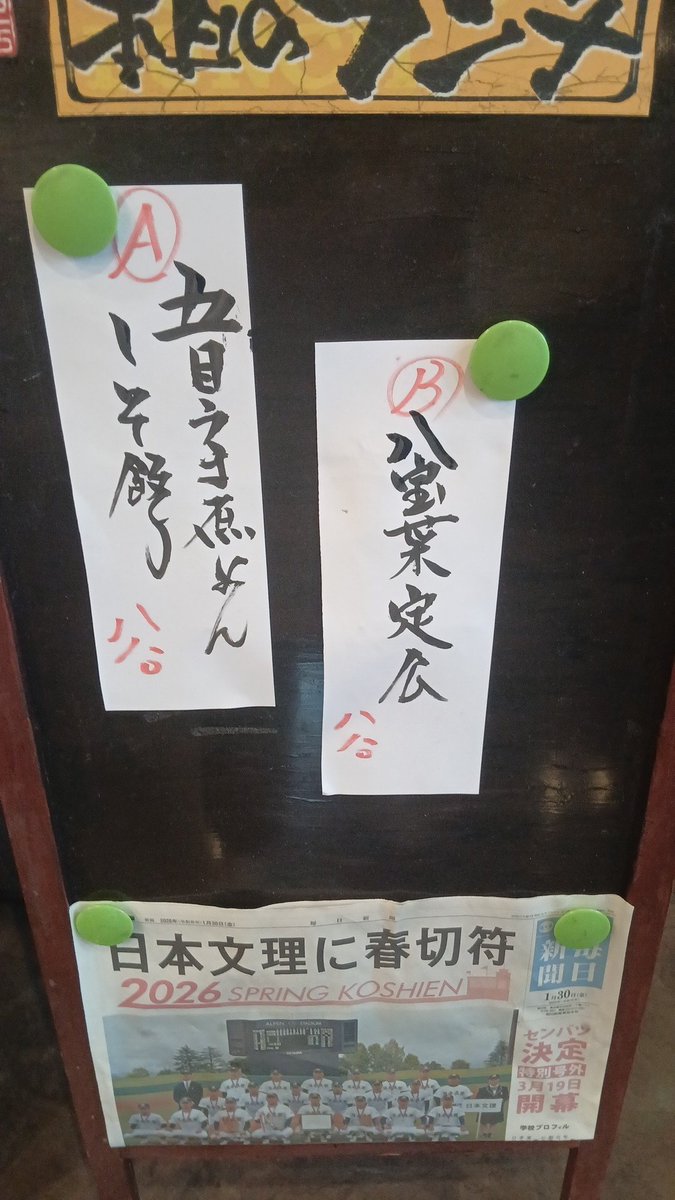 本日のランチ
A
五目うま煮めん
しそ餃子
八八〇
B
八宝菜定食
八八〇
毎日新聞
日本文理に春切符
2026 SPRING KOSHIEN
毎日新聞
1月30日(金)
センバツ
決定
特別号外
3月19日
開幕
学校プロフィル
日本文理